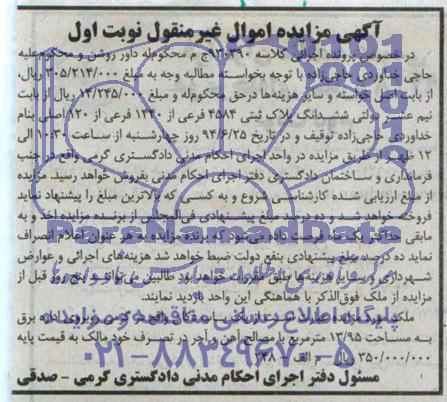 آگهی مزایده اموال غیرمنقول نوبت اول
در خصوص پرونده اجرائی کلاسه ۹۳۰۳۹۰ج م محکوم‌له داور روشن و محکوم‌علیه
حاجی خداوردی حاجی‌زاده با توجه بخواسته مطالبه وجه به مبلغ ۳۰۵/۲۱۴/۰۰۰ ریال،
از بابت اصل خواسته و سایر هزینه‌ها درحق محکوم‌له و مبلغ ۱۴/۲۴۵/۰۰۰ ریال از بابت
نیم عشر دولتی ششدانگ پلاک ثبتی ۴۵۸۴ فرعی از ۱۳۴۰ فرعی از ۱۲۰ اصلی بنام
خداوردی حاجی‌زاده توقیف و در تاریخ ۹۴/۶/۲۵ روز چهارشنبه از ساعت ۱۰:۳۰ الی
۱۲ ظهر از طریق مزایده در واحد اجرای احکام مدنی دادگستری گرمی واقع در جنب
فرمانداری و ساختمان دادگستری دفتر اجرای احکام مدنی بفروش خواهد رسید. مزایده
از مبلغ ارزیابی شده کارشناسی شروع و به کسی که بالاترین مبلغ را پیشنهاد نماید
فروخته خواهد شد و ده درصد مبلغ پیشنهادی فی‌المجلس از برنده مزایده اخذ و به
مابقی حداکثر یک ماه فرصت داده می‌شود که برنده مزایده به هر عنوان اعلام انصراف
نماید ده درصد مبلغ پیشنهادی بنفع دولت ضبط خواهد شد هزینه‌های اجرائی و عوارض
شهرداری و سایر هزینه‌ها طبق مقررات خواهد بود طالبین می‌توانند پنج روز قبل از
مزایده از ملک فوق‌الذکر با هماهنگی این واحد بازدید نمایند.
ملک مورد مزایده باب دکان واقع در گرمی روبروی اداره برق
به مساحت ۱۳/۹۵ مترمربع با مصالح آهن و آجر در تصرف خود مالک به قیمت پایه
۳۵۰/۰۰۰/۰۰۰ ریال م الف
مسئول دفتر اجرای احکام مدنی دادگستری گرمی – صدقی
ParsNamadData
پایگاه اطلاع رسانی مناقصه و مزایده
۰۲۱-۸۸۳۴۹۶۷۰-۵